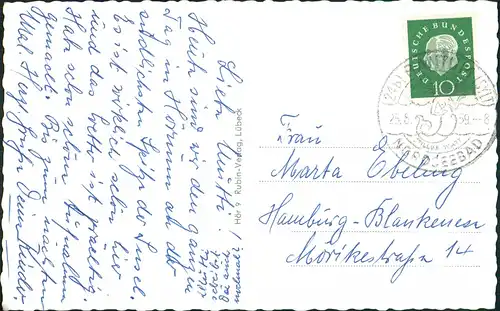 Liebe Mutti!
Heute sind wir den ganzen
Tag in Hörnum an der
südlichsten Spitze der Insel.
Es ist wirklich schön hier
und das Wetter ist prächtig.
Hab schon schöne Aufnahmen
gemacht. Bis zum nächsten
Mal Herzl. Grüße Deine Kinder.
Hör Rubin-Verlag, Lübeck
DEUTSCHE BUNDESPOST
10
25.8.59-8
NORDSEEBAD
Frau
Marta Ebeling
Hamburg-Blankenese
Mörikestraße 14